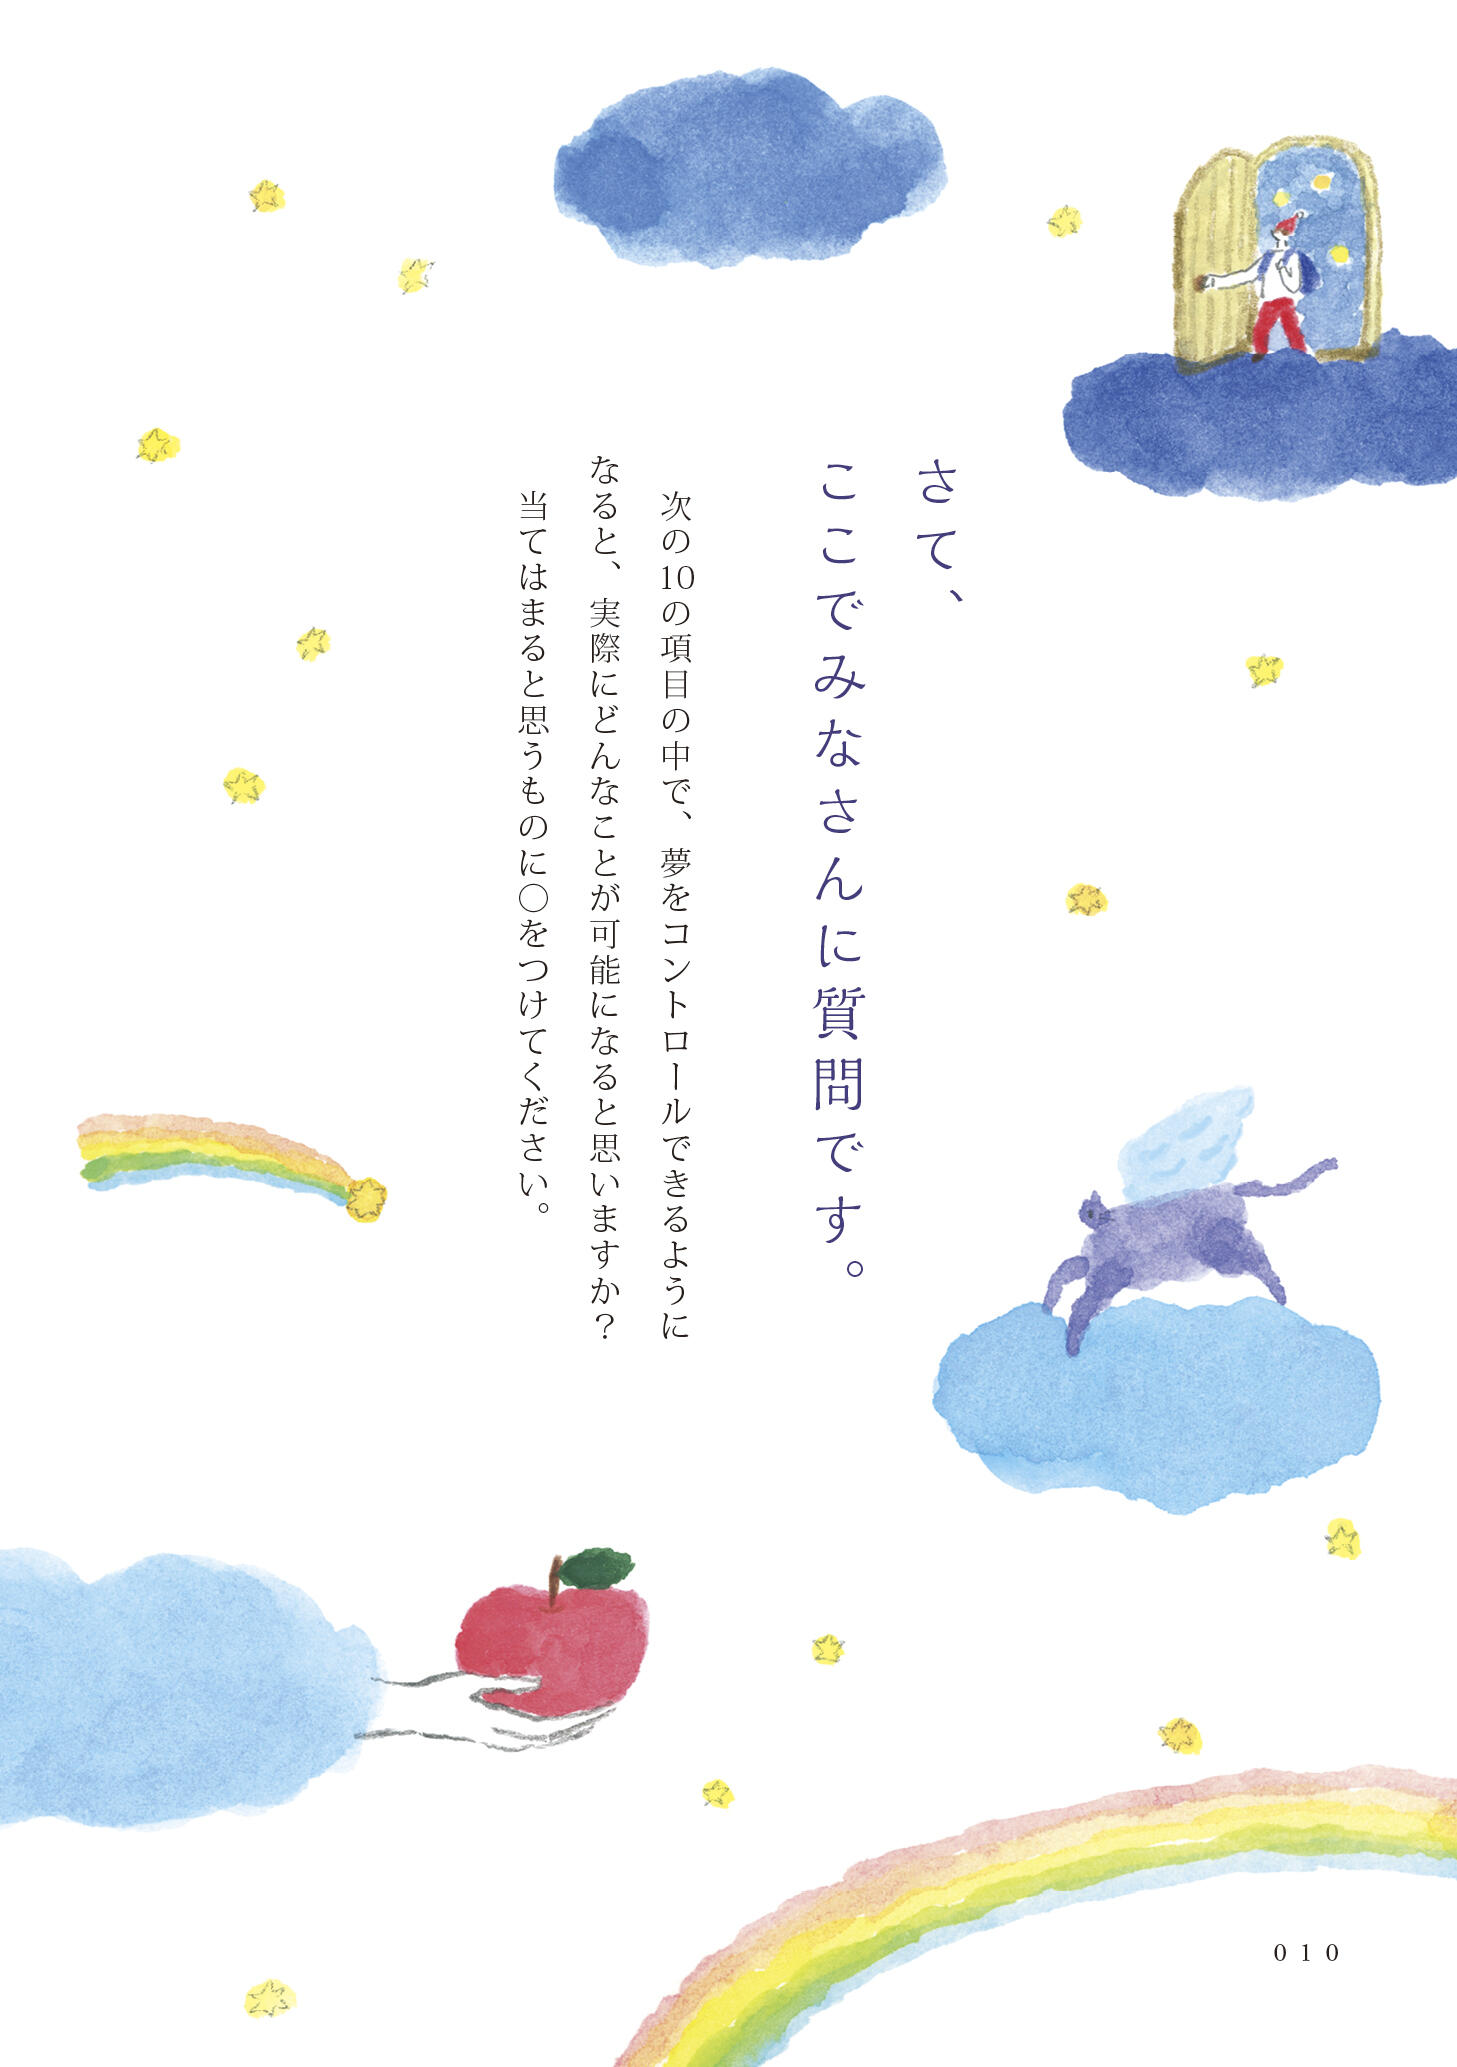 さて、
ここでみなさんに質問です。
次の10の項目の中で、夢をコントロールできるように
なると、実際にどんなことが可能になると思いますか？
当てはまると思うものに〇をつけてください。
010